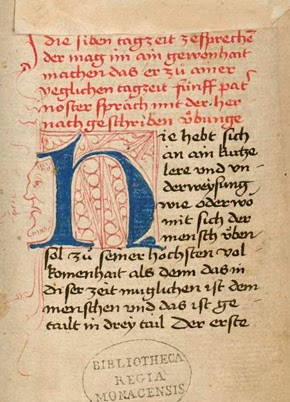 die siben tagzeit ze sprechen
der mag im ain gewonhait
machen das er zů ainer
yeglichen tagzeit fünff pat
noster spräch mit der her
nach geschriben übunge
Hie hebt sich
an ain kurtze
lere und vn
derweysung
wie oder wo
mit sich der
mensch üben
sol zů seiner höchsten vol
komenhait als denn das in
diser zeit muglichen ist dem
menschen vnd das ist ge
tailt in drey tail Der erste
BIBLIOTHECA
REGIA
MONACENSIS